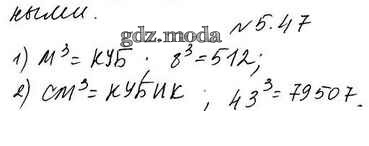 ными.
gdz.moda
№5.47
1) м³ = КУБ. 8³ = 512;
2) СМ³ = КУБИК ; 43³ = 79507.